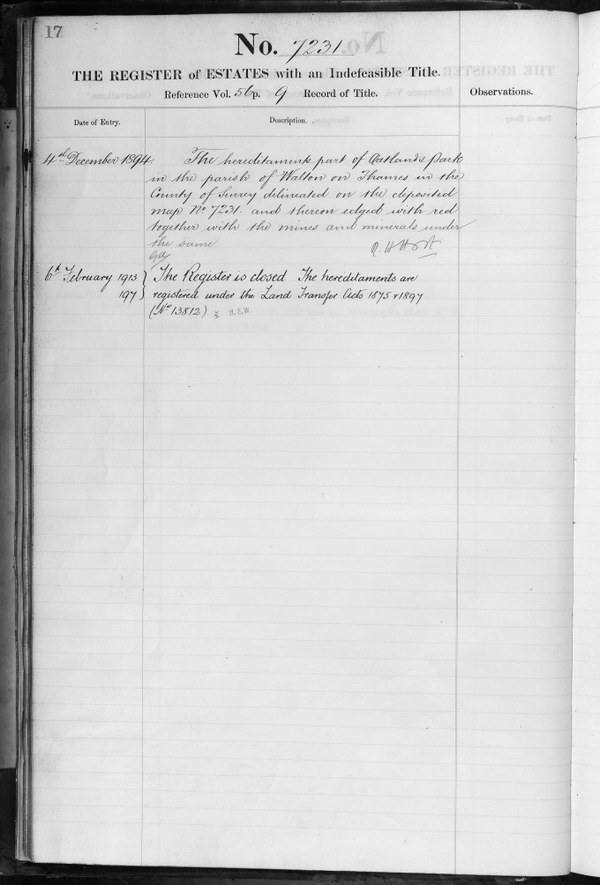 17
No. 7231
THE REGISTER of ESTATES with an Indefeasible Title.
Reference Vol. 56 p. 9 Record of Title.
Observations.
Date of Entry.
Description.
4th December 1894
The hereditaments part of Oatlands Park
in the parish of Walton on Thames in the
County of Surrey delineated on the deposited
map No 7231. and thereon edged with red
together with the mines and minerals under
the same
6th February 1913
197
The Register is closed The hereditaments are
registered under the Land Transfer Acts 1875 & 1897
(No 13812)